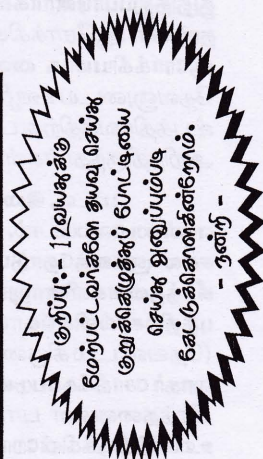 குறிப்பு: 12வயதுக்கு
மேற்பட்டவர்களே தயவு செய்து
குறுக்கெழுத்துப் போட்டியை
செய்து அனுப்பும்படி
கேட்டுக்கொள்கின்றோம்.
- நன்றி -